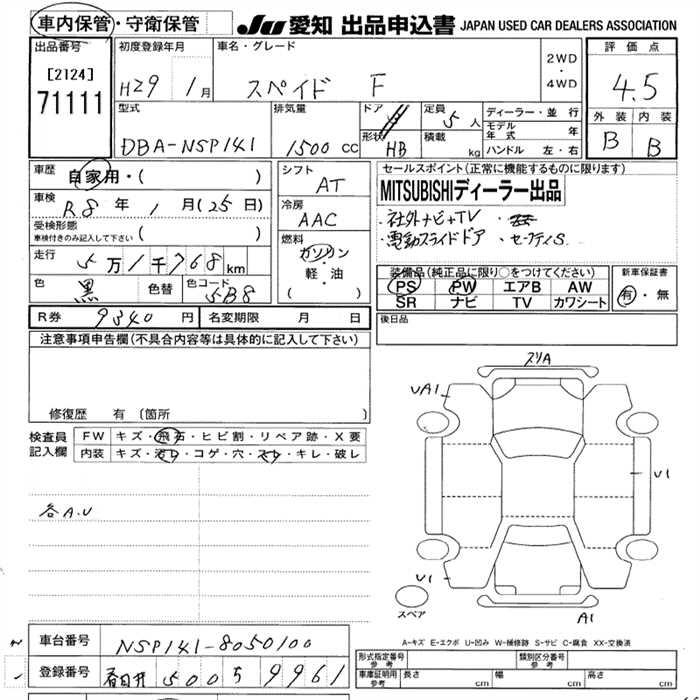 車内保管・守衛保管 JU 愛知 出品申込書 JAPAN USED CAR DEALERS ASSOCIATION
出品番号 初度登録年月 車名・グレード 2WD・4WD 評価点
[2124] 71111 H29 1月 スペイド F 4.5
型式 排気量 ドア 定員 5人 ディーラー・並行 外装 内装
DBA-NSP141 1500cc 形状 HB 積載 kg モデル年式 年 B B
ハンドル 左・右
車歴 自家用・( ) シフト AT セールスポイント(正常に機能するものに限ります)
MITSUBISHIディーラー出品
車検 R8年1月(25日) 冷房 AAC ・社外ナビ+TV
受検形態 車検付きのみ記入して下さい ( ) ・電動スライドドア ・セーフティS.
走行 5万1千768km 燃料 ガソリン・軽・油 ( )
装備品(純正品に限り○をつけてください) 新車保証書
PS PW エアB AW 有・無
SR ナビ TV カワシート
色 黒 色替 色コード 5B8
R券 9340円 名変期限 月 日 後日品
注意事項申告欄(不具合内容等は具体的に記入して下さい)
修復歴 有 〔箇所
検査員記入欄 FW キズ・飛石・ヒビ割・リペア跡・X要
内装 キズ・汚レ・コゲ・穴・スレ・キレ・破レ
各A.U
スリA
UA1
U1
U1
A1
スペア
A-キズ E-エクボ U-凹み W-補修跡 S-サビ C-腐食 XX-交換済
車台番号 NSP141-8050100
登録番号 春日井 500 ち 9961
形式指定番号 参考 類別区分番号 参考
車庫証明用 参考 長さ cm 幅 cm 高さ cm